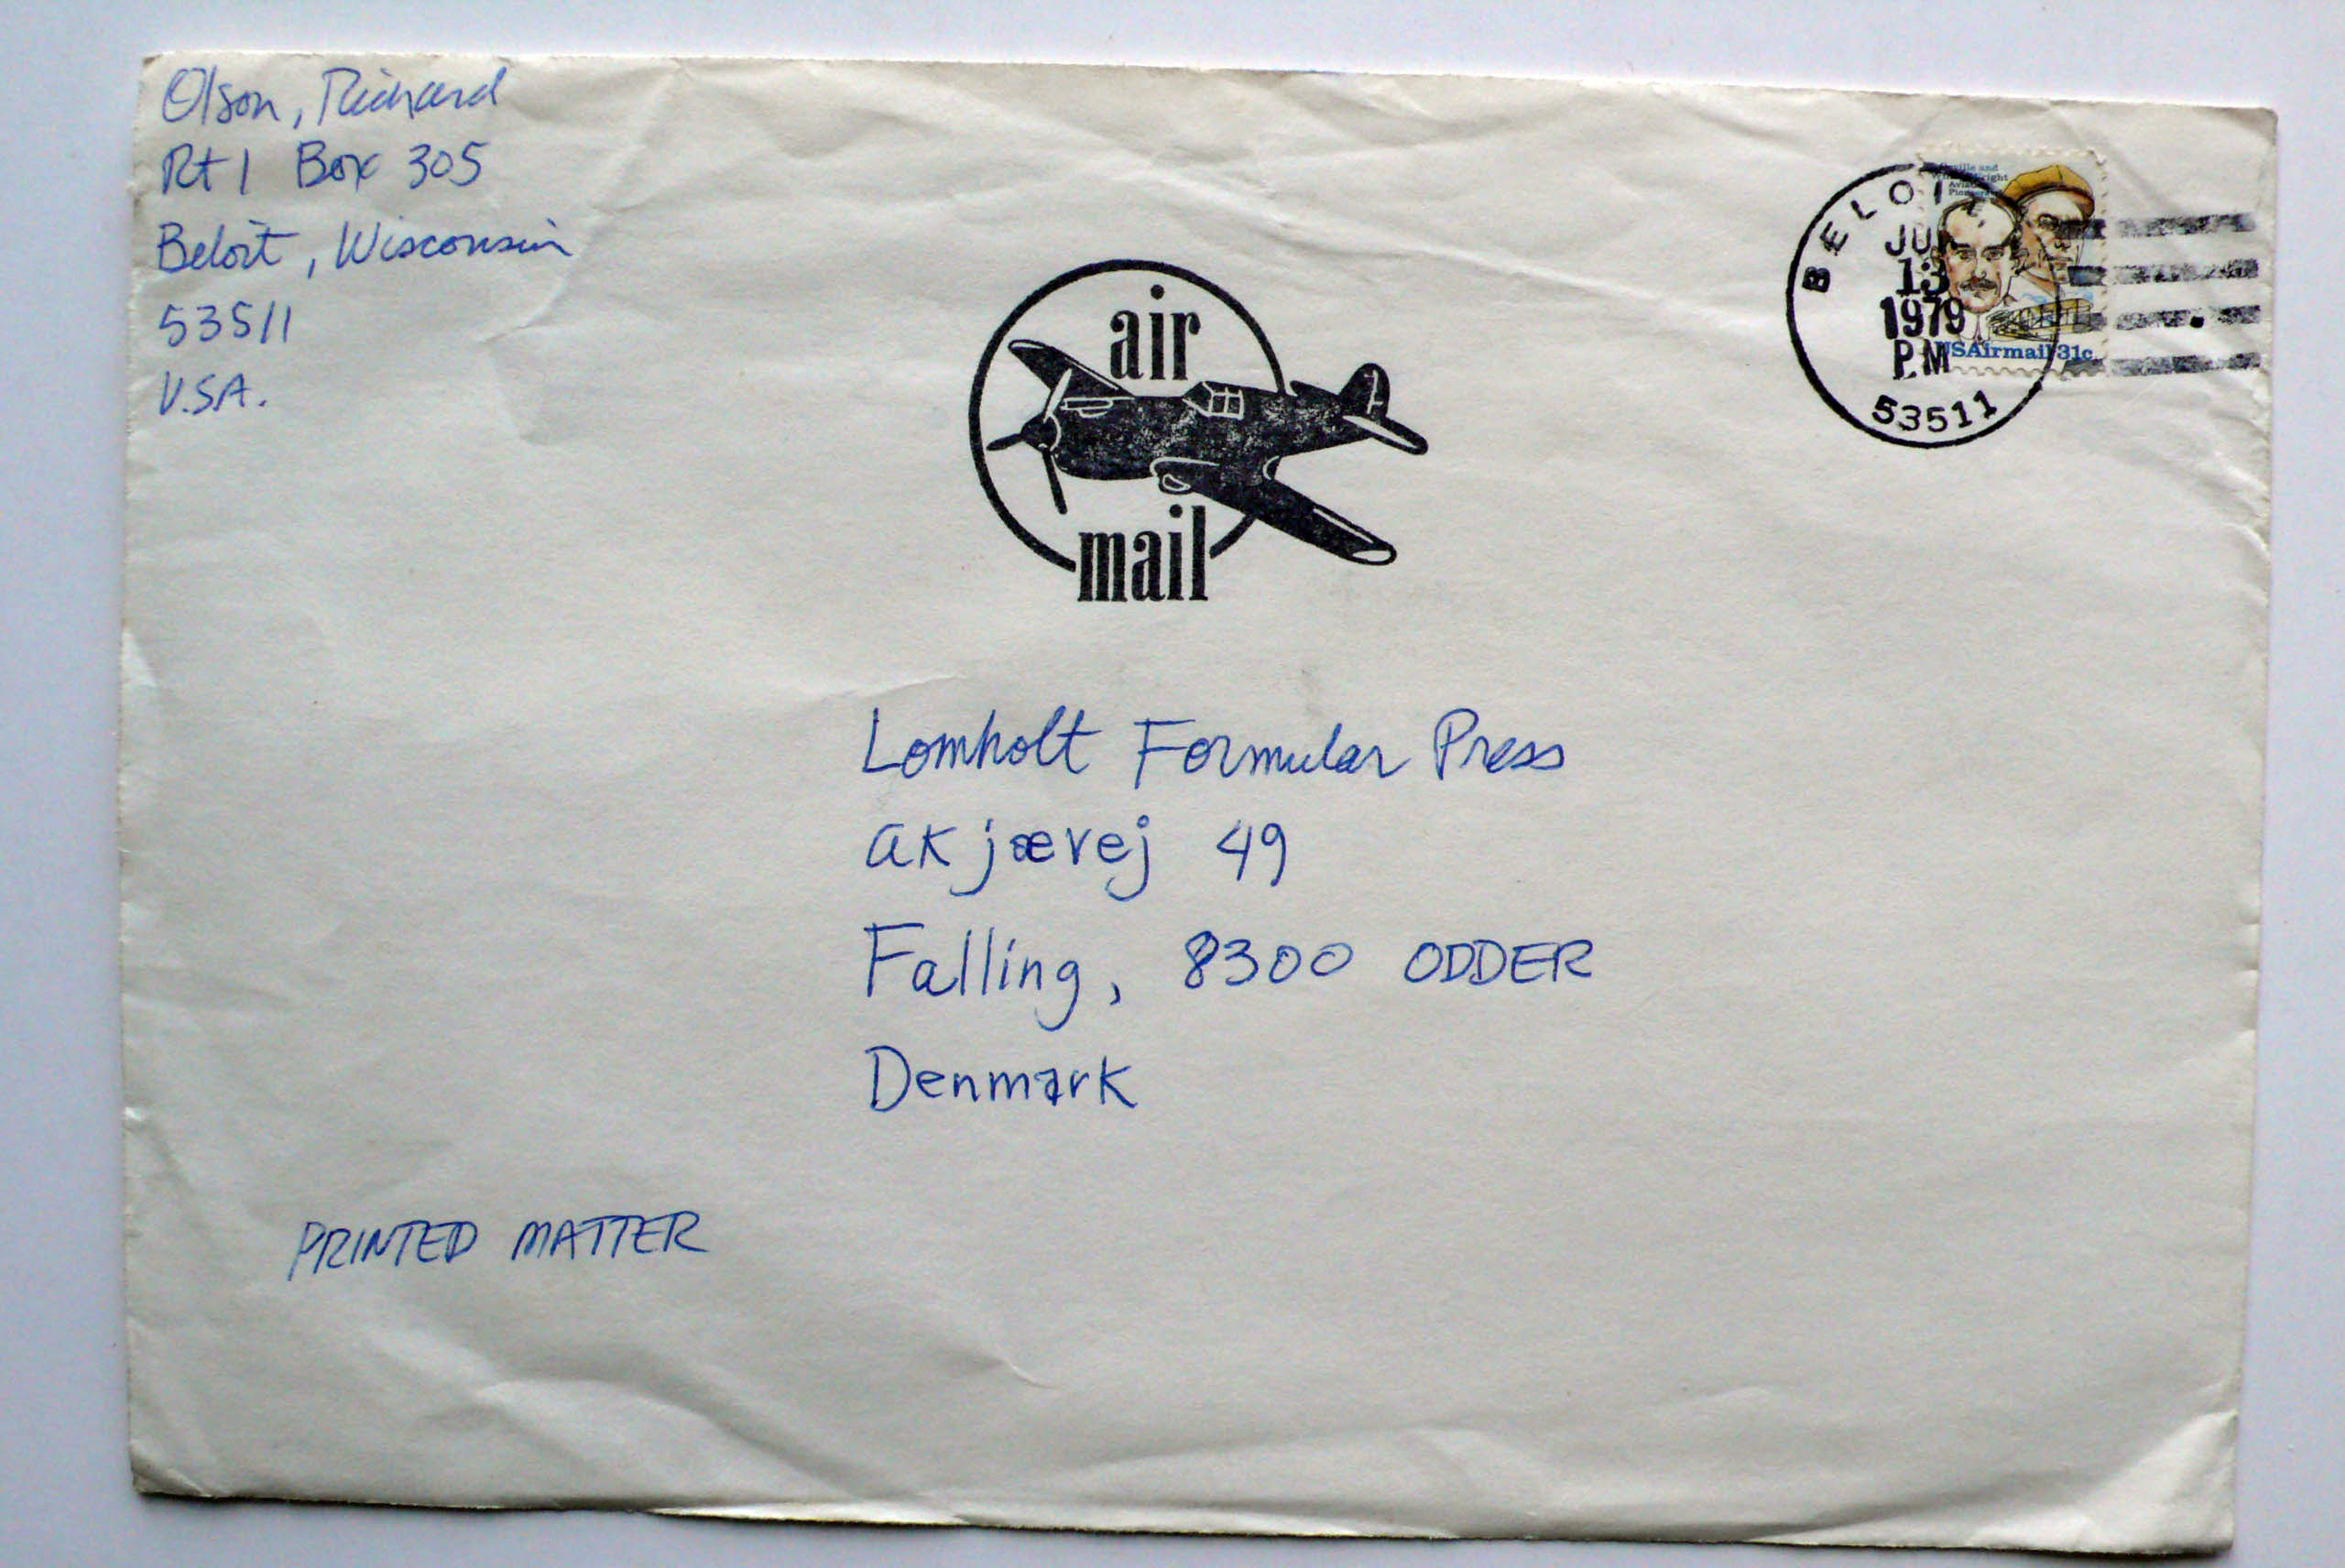 Olson, Richard
Rt 1 Box 305
Beloit, Wisconsin
53511
U.S.A.
air
mail
BELOIT
13
1979
PM
53511
Orville and
Wright
USAirmail 31c
Lomholt Formular Press
akjævej 49
Falling, 8300 ODDER
Denmark
PRINTED MATTER